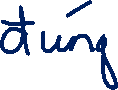 đúng